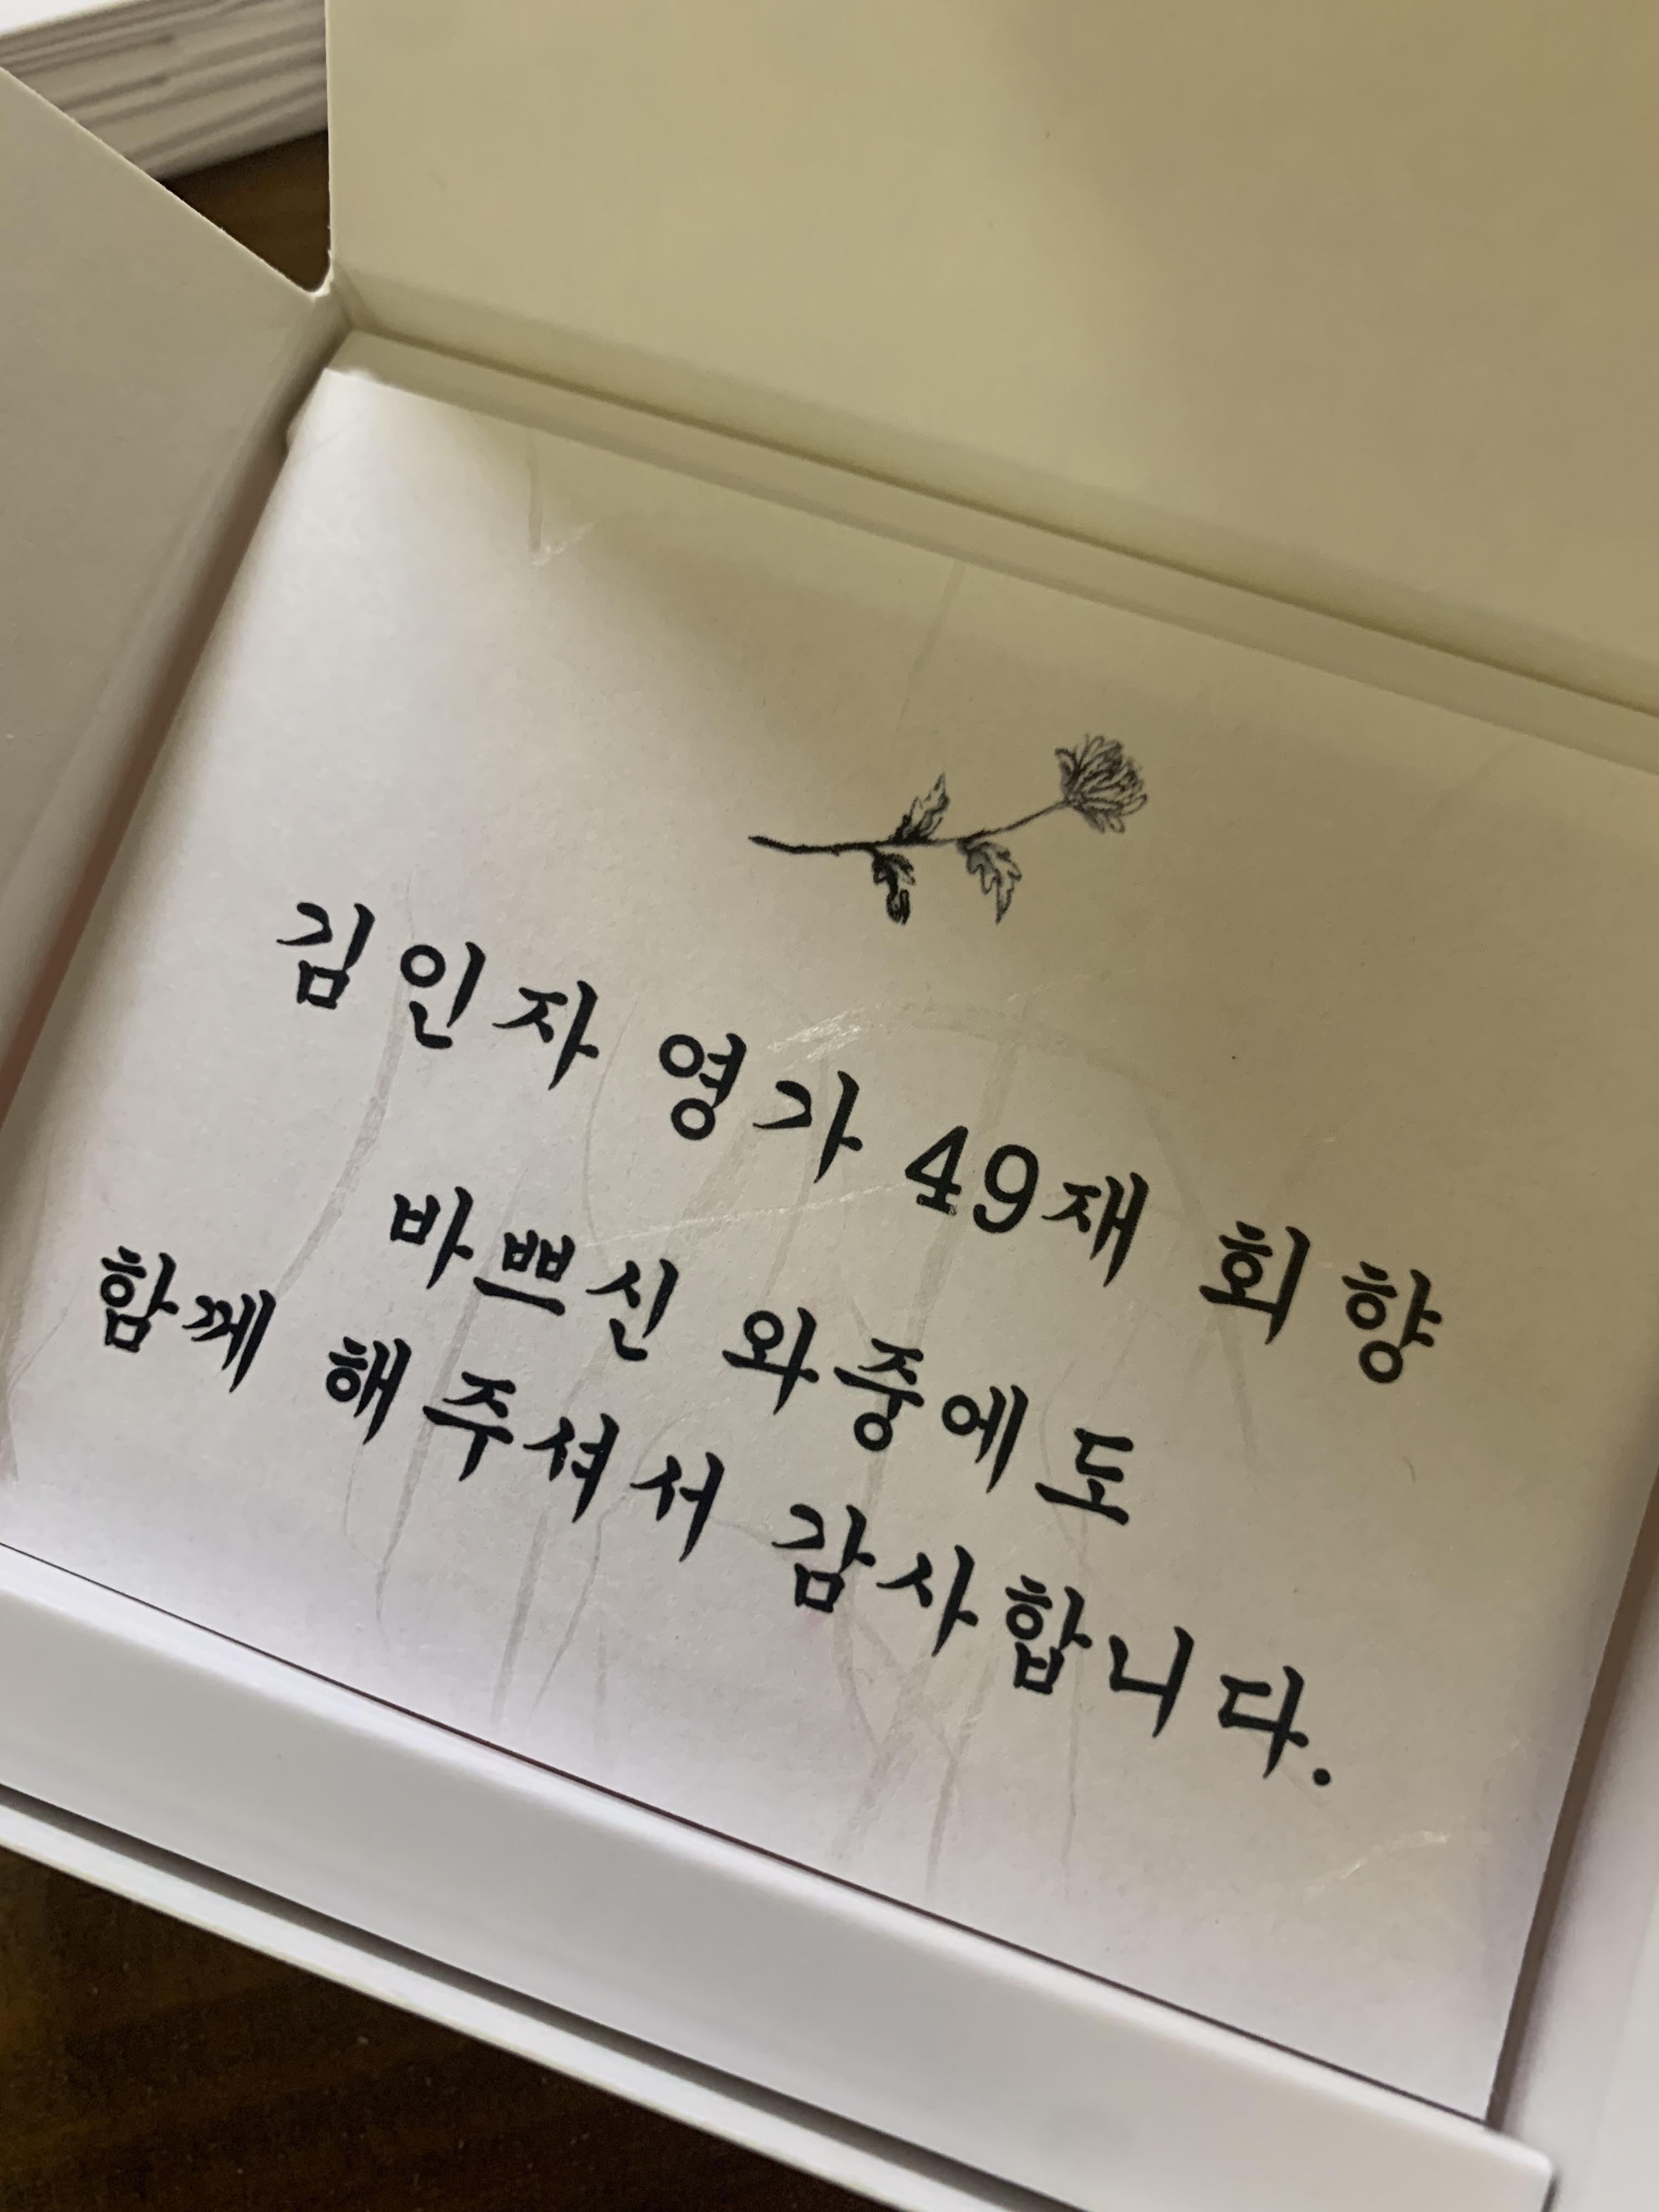 김인자 영가 49재 회향
바쁘신 와중에도
함께 해주셔서 감사합니다.